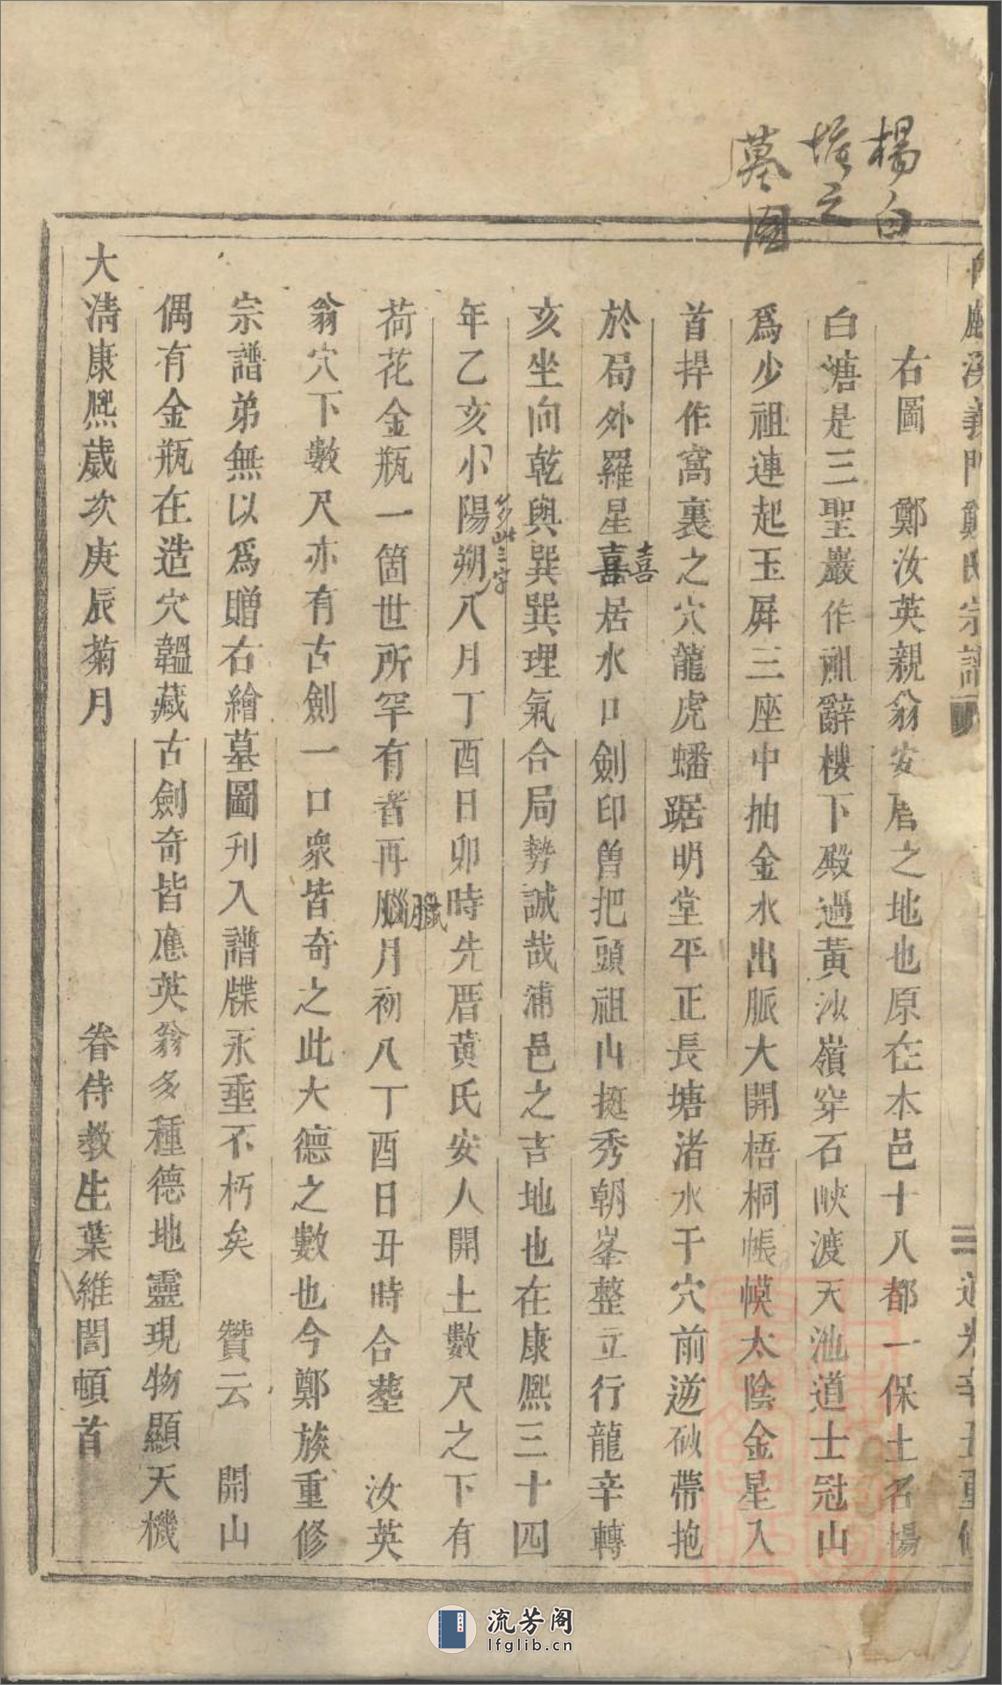 楊白
塘之
墓圖
白麟溪義門鄭氏宗譜
三
右圖　鄭汝英親翁安厝之地也原在本邑十八都一保土名楊
白溏是三聖巖作祖辭樓下殿過黃沙嶺穿石峽渡天池道士冠山
爲少祖連起玉屏三座中抽金水出脈大開梧桐帳幙太陰金星入
首捍作窩裏之穴龍虎蟠踞明堂平正長塘渚水于穴前逆砂帶抱
於局外羅星喜居水口劍印曽把頭祖山挺秀朝峯整立行龍辛轉
喜
亥坐向乾與巽巽理氣合局勢誠哉浦邑之吉地也在康熈三十四
年乙亥小陽朔八月丁酉日卯時先厝黃氏安人開土數尺之下有
多此三字
荷花金瓶一箇世所罕有者再臘月初八丁酉日丑時合塟　汝英
臘
翁穴下數尺亦有古劍一口衆皆奇之此大德之數也今鄭族重修
宗譜弟無以爲贈右繪墓圖刋入譜牒永垂不朽矣　贊云　開山
偶有金瓶在造穴韞藏古劍奇皆應英翁多種德地靈現物顯天機
大清康熈歲次庚辰菊月　眷侍教生葉維誾頓首
流芳阁
lfglib.cn